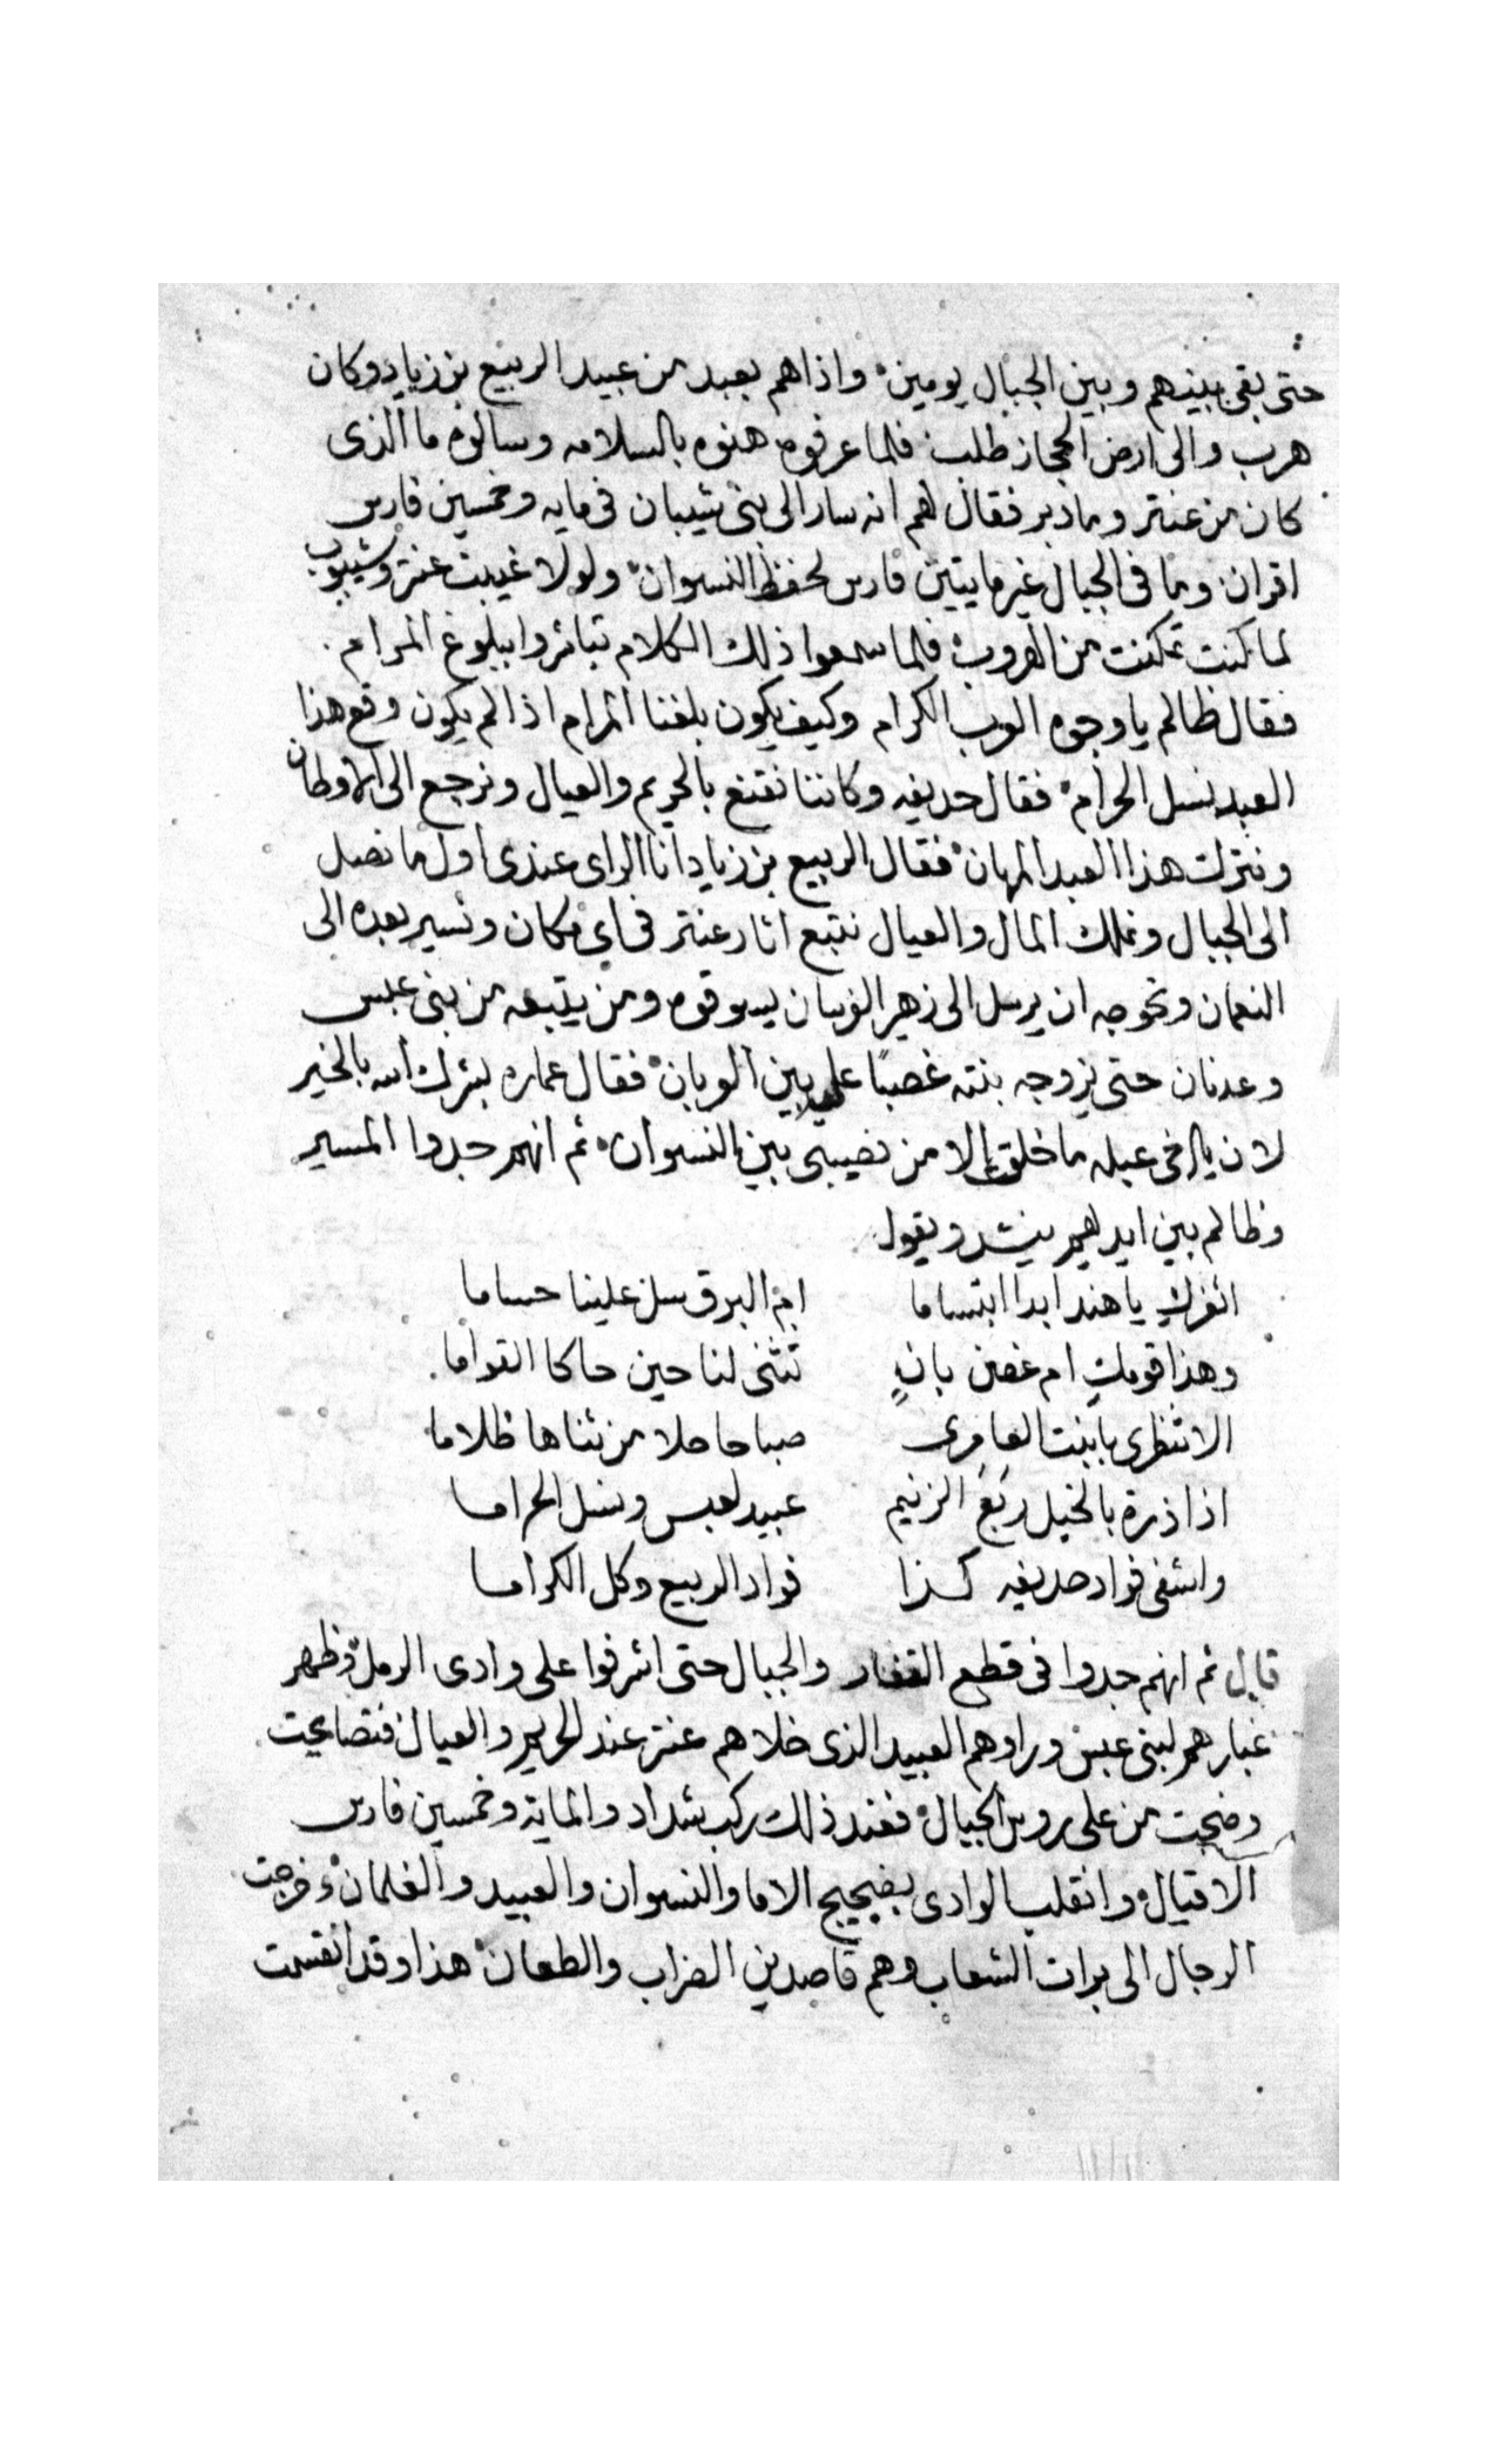 حتى بقى بينهم وبين الجبال يومين واذاهم بعبد من عبيد الربيع بن زياد وكان
هرب والى ارض الحجاز طلب فلما عرفوه هنوه بالسلامه وسالوه ما الذى
كان من عنتر وما دبر فقال لهم انه سار الى بنى شيبان فى مايه وخمسين فارس
اقران وما فى الجبال غير مايتين فارس لحفظ النسوان ولولا غيبت عنتر وشيبوب
لما كنت تمكنت من الهروب فلما سمعوا ذلك الكلام تباشروا ببلوغ المرام
فقال ظالم يا وجوه العرب الكرام وكيف يكون بلغنا المرام اذا لم يكون وقع هذا
العبد نسل الحرام فقال حديفه وكاننا نقنع بالحريم والعيال ونرجع الى الاوطان
ونترك هذا العبد المهان فقال الربيع بن زياد انا الراى عندى اول ما نصل
الى الجبال ونملك المال والعيال نتبع اثار عنتر فى اى مكان ونسير بعده الى
النعمان ونحوجه ان يرسل الى زهير الفرسان يسوقوه ومن يتبعه من بنى عبس
وعدنان حتى يزوجه بنته غصبًا على بين العربان فقال عماره بشرك الله بالخير
لان يا اخى عبله ما خلقت الا من نصيبى بين النسوان ثم انهم جدوا المسير
وظالم بين ايديهم ينشد ويقول
اثغرك يا هند ابدا ابتساما ام البرق سل علينا حساما
وهذا قومك ام غصن بانٍ تثنى لنا حين حاكا القواما
الا تنظرى يا بنت العامرى صباحا حلا من ثناها ظلاما
اذا ذرة بالخيل ربع الزنيم عبيد لعبس ونسل الحراما
واشفى فواد حديفه كذا فواد الربيع وكل الكراما
قال ثم انهم جدوا فى قطع القفار والجبال حتى اشرفوا على وادى الرمل وظهر
غبارهم لبنى عبس وراوهم العبيد الذى خلاهم عنتر عند الحريم والعيال فتصايحت
وضجت من على روس الجبال فعند ذلك ركب شداد والماية وخمسين فارس
الاقيال وانقلب الوادى بضجيج الاما والنسوان والعبيد والغلمان وخرجت
الرجال الى برات الشعاب وهم قاصدين الضراب والطعان هذا وقد انقسمت